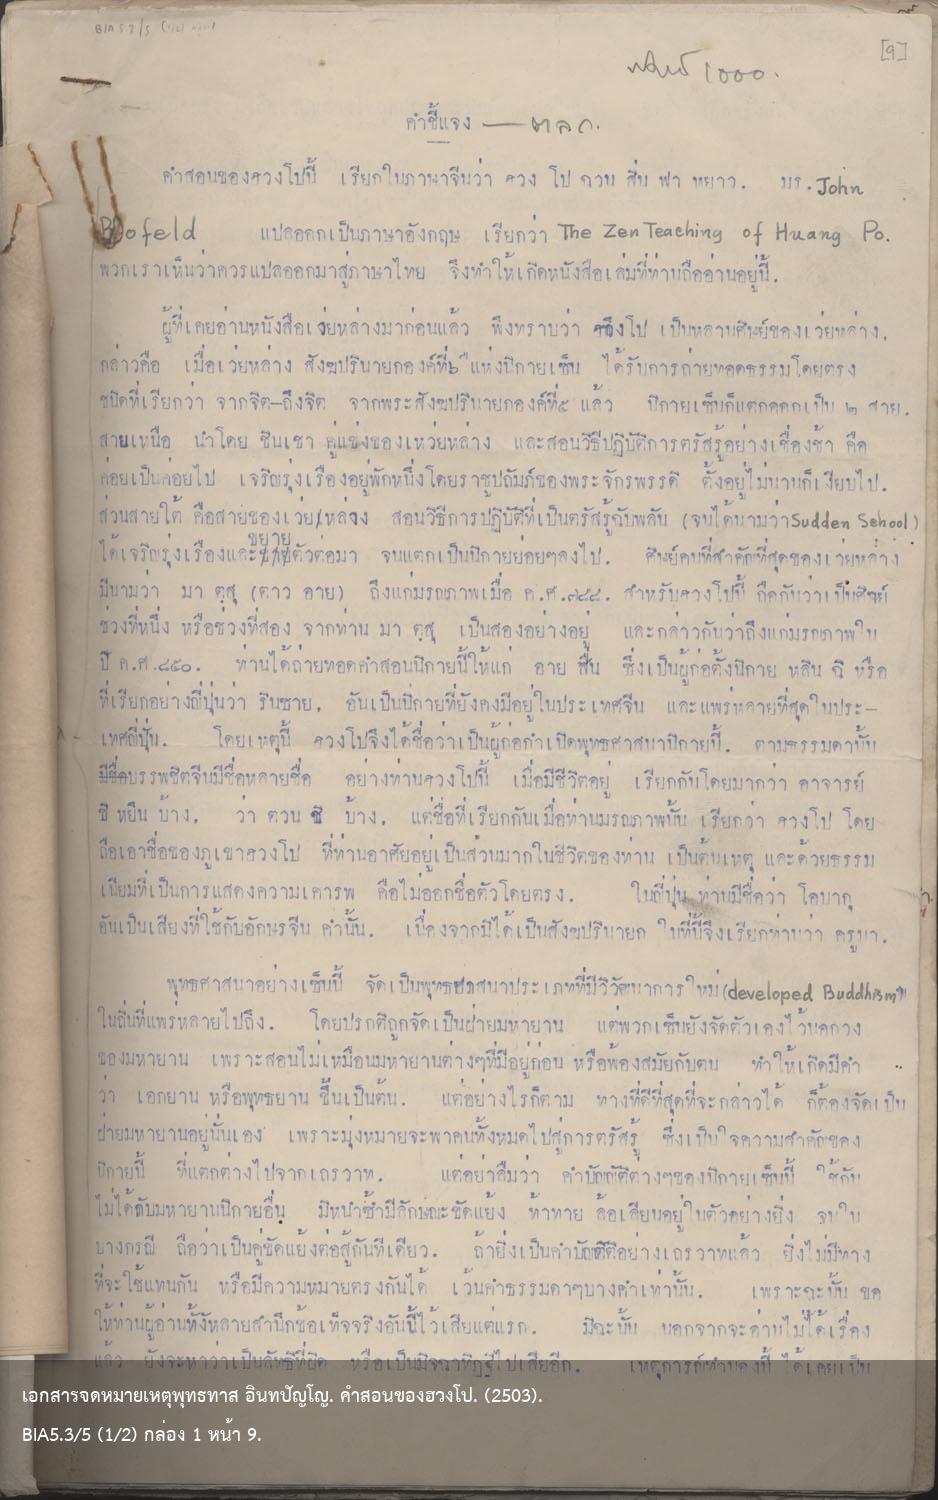 BIA 5.3/5 (1/2)
[9]
พิมพ์ 1000.
คำชี้แจง — ตลก.
คำสอนของฮวงโปนี้ เรียกในภาษาจีนว่า ฮวง โป ฉวน สิ่น ฟา หยาว. มร. John
Blofeld แปลออกเป็นภาษาอังกฤษ เรียกว่า The Zen Teaching of Huang Po.
พวกเราเห็นว่าควรแปลออกมาสู่ภาษาไทย จึงทำให้เกิดหนังสือเล่มที่ท่านถืออ่านอยู่นี้.
ผู้ที่เคยอ่านหนังสือเว่ยหล่างมาก่อนแล้ว พึงทราบว่า ฮวงโป เป็นหลานศิษย์ของเว่ยหล่าง,
กล่าวคือ เมื่อเว่ยหล่าง สังฆปรินายกองค์ที่๖ แห่งนิกายเซ็น ได้รับการถ่ายทอดธรรมโดยตรง
ชนิดที่เรียกว่า จากจิต-ถึงจิต จากพระสังฆปรินายกองค์ที่๕ แล้ว นิกายเซ็นก็แตกออกเป็น ๒ สาย.
สายเหนือ นำโดย ชินเชา คู่แข่งของเหว่ยหล่าง และสอนวิธีปฏิบัติการตรัสรู้อย่างเชื่องช้า คือ
ค่อยเป็นค่อยไป เจริญรุ่งเรืองอยู่พักหนึ่งโดยราชูปถัมภ์ของพระจักรพรรดิ ตั้งอยู่ไม่นานก็เงียบไป.
ส่วนสายใต้ คือสายของเว่ยหล่าง สอนวิธีการปฏิบัติที่เป็นตรัสรู้ฉับพลัน (จนได้นามว่า Sudden School)
ได้เจริญรุ่งเรืองและขยายตัวต่อมา จนแตกเป็นนิกายย่อยๆลงไป. ศิษย์คนที่สำคัญที่สุดของเว่ยหล่าง
มีนามว่า มา ตฺสุ (ตาว อาย) ถึงแก่มรณภาพเมื่อ ค.ศ.๗๘๘. สำหรับฮวงโปนี้ ถือกันว่าเป็นศิษย์
ช่วงที่หนึ่ง หรือช่วงที่สอง จากท่าน มา ตฺสุ เป็นสองอย่างอยู่ และกล่าวกันว่าถึงแก่มรณภาพใน
ปี ค.ศ.๘๕๐. ท่านได้ถ่ายทอดคำสอนนิกายนี้ให้แก่ อาย สืน ซึ่งเป็นผู้ก่อตั้งนิกาย หลิน ฉิ หรือ
ที่เรียกอย่างญี่ปุ่นว่า รินซาย, อันเป็นนิกายที่ยังคงมีอยู่ในประเทศจีน และแพร่หลายที่สุดในประ-
เทศญี่ปุ่น. โดยเหตุนี้ ฮวงโปจึงได้ชื่อว่าเป็นผู้ก่อกำเนิดพุทธศาสนานิกายนี้. ตามธรรมดานั้น
บรรพชิตจีนมีชื่อหลายชื่อ อย่างท่านฮวงโปนี้ เมื่อมีชีวิตอยู่ เรียกกันโดยมากว่า อาจารย์
ซี หยืน บ้าง, ว่า ตวน ซี บ้าง, แต่ชื่อที่เรียกกันเมื่อท่านมรณภาพนั้น เรียกว่า ฮวงโป โดย
ถือเอาชื่อของภูเขาฮวงโป ที่ท่านอาศัยอยู่เป็นส่วนมากในชีวิตของท่าน เป็นต้นเหตุ และด้วยธรรม
เนียมที่เป็นการแสดงความเคารพ คือไม่ออกชื่อตัวโดยตรง. ในญี่ปุ่น ท่านมีชื่อว่า โอบากุ
อันเป็นเสียงที่ใช้กับอักษรจีน คำนั้น. เนื่องจากมิได้เป็นสังฆปรินายก ในที่นี้จึงเรียกท่านว่า ครูบา.
พุทธศาสนาอย่างเซ็นนี้ จัดเป็นพุทธศาสนาประเภทที่มีวิวัฒนาการใหม่ (developed Buddhism)
ในถิ่นที่แพร่หลายไปถึง. โดยปรกติถูกจัดเป็นฝ่ายมหายาน แต่พวกเซ็นยังจัดตัวเองไว้นอกวง
ของมหายาน เพราะสอนไม่เหมือนมหายานต่างๆที่มีอยู่ก่อน หรือพ้องสมัยกับตน ทำให้เกิดมีคำ
ว่า เอกยาน หรือพุทธยาน ขึ้นเป็นต้น. แต่อย่างไรก็ตาม ทางที่ดีที่สุดที่จะกล่าวได้ ก็ต้องจัดเป็น
ฝ่ายมหายานอยู่นั่นเอง เพราะมุ่งหมายจะพาคนทั้งหมดไปสู่การตรัสรู้ ซึ่งเป็นใจความสำคัญของ
นิกายนี้ ที่แตกต่างไปจากเถรวาท. แต่อย่าลืมว่า คำบัญญัติต่างๆของนิกายเซ็นนี้ ใช้กัน
ไม่ได้กับมหายานนิกายอื่น มิหนำซ้ำมีลักษณะขัดแย้ง ท้าทาย ล้อเลียนอยู่ในตัวอย่างยิ่ง จนใน
บางกรณี ถือว่าเป็นคู่ขัดแย้งต่อสู้กันทีเดียว. ถ้ายิ่งเป็นคำบัญญัติอย่างเถรวาทแล้ว ยิ่งไม่มีทาง
ที่จะใช้แทนกัน หรือมีความหมายตรงกันได้ เว้นคำธรรมดาๆบางคำเท่านั้น. เพราะฉะนั้น ขอ
ให้ท่านผู้อ่านทั้งหลายสำนึกข้อเท็จจริงอันนี้ไว้เสียแต่แรก. มิฉะนั้น นอกจากจะอ่านไม่ได้เรื่อง
แล้ว ยังจะหาว่าเป็นลัทธิที่ผิด หรือเป็นมิจฉาทิฏฐิไปเสียอีก. เหตุการณ์ทำนองนี้ ได้เคยเป็น
เอกสารจดหมายเหตุพุทธทาส อินทปัญโญ. คำสอนของฮวงโป. (2503).
BIA5.3/5 (1/2) กล่อง 1 หน้า 9.